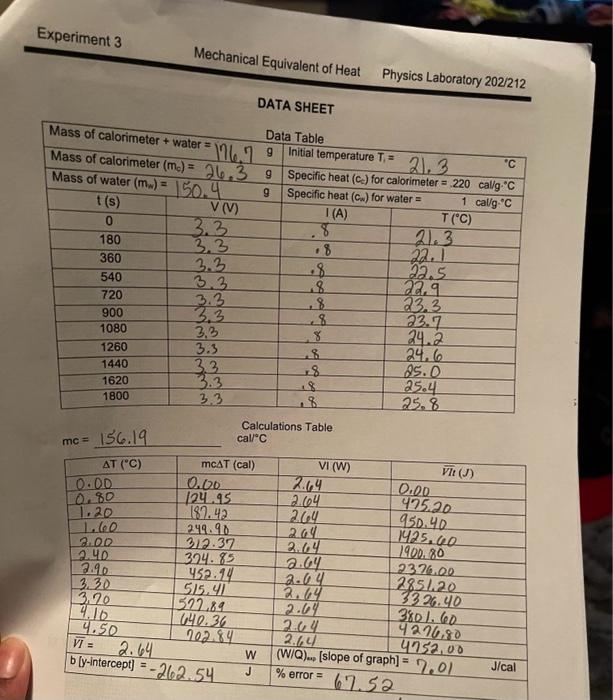 Experiment 3
Mechanical Equivalent of Heat Physics Laboratory 202/212
DATA SHEET
Data Table
Mass of calorimeter + water = 176.7 g Initial temperature Tᵢ = 21.3 °C
Mass of calorimeter (mc) = 26.3 g Specific heat (cc) for calorimeter = .220 cal/g·°C
Mass of water (mw) = 150.4 g Specific heat (cw) for water = 1 cal/g·°C
t (s) V (V) I (A) T (°C)
0 3.3 .8 21.3
180 3.3 .8 22.1
360 3.3 .8 22.5
540 3.3 .8 22.9
720 3.3 .8 23.3
900 3.3 .8 23.7
1080 3.3 .8 24.2
1260 3.3 .8 24.6
1440 3.3 .8 25.0
1620 3.3 .8 25.4
1800 3.3 .8 25.8
Calculations Table
mc = 156.19 cal/°C
ΔT (°C) mcΔT (cal) VI (W) V̅I̅t (J)
0.00 0.00 2.64 0.00
0.80 124.95 2.64 475.20
1.20 187.42 2.64 950.40
1.60 249.90 2.64 1425.60
2.00 312.37 2.64 1900.80
2.40 374.85 2.64 2376.00
2.90 452.94 2.64 2851.20
3.30 515.41 2.64 3326.40
3.70 577.89 2.64 3801.60
4.10 640.36 2.64 4276.80
4.50 702.84 2.64 4752.00
V̅I̅ = 2.64 W (W/Q)exp [slope of graph] = 7.01 J/cal
b [y-intercept] = -262.54 J % error = 67.52